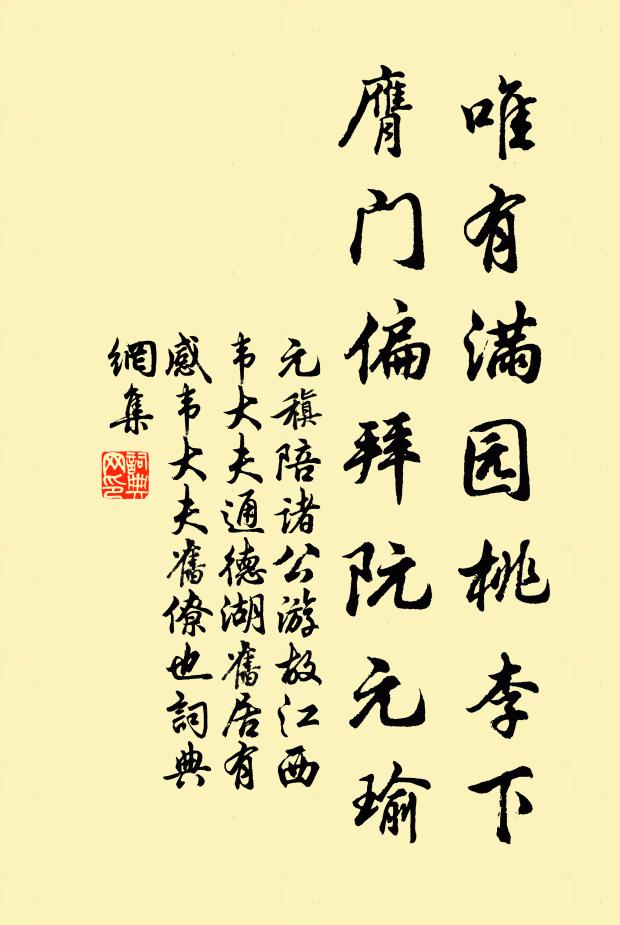 唯有满园桃李下
膺门偏拜阮元瑜
元稹陪诸公游故江西
韦大夫通德湖舊居有
感韦大夫舊僚也詞典
網集
詞典
网印